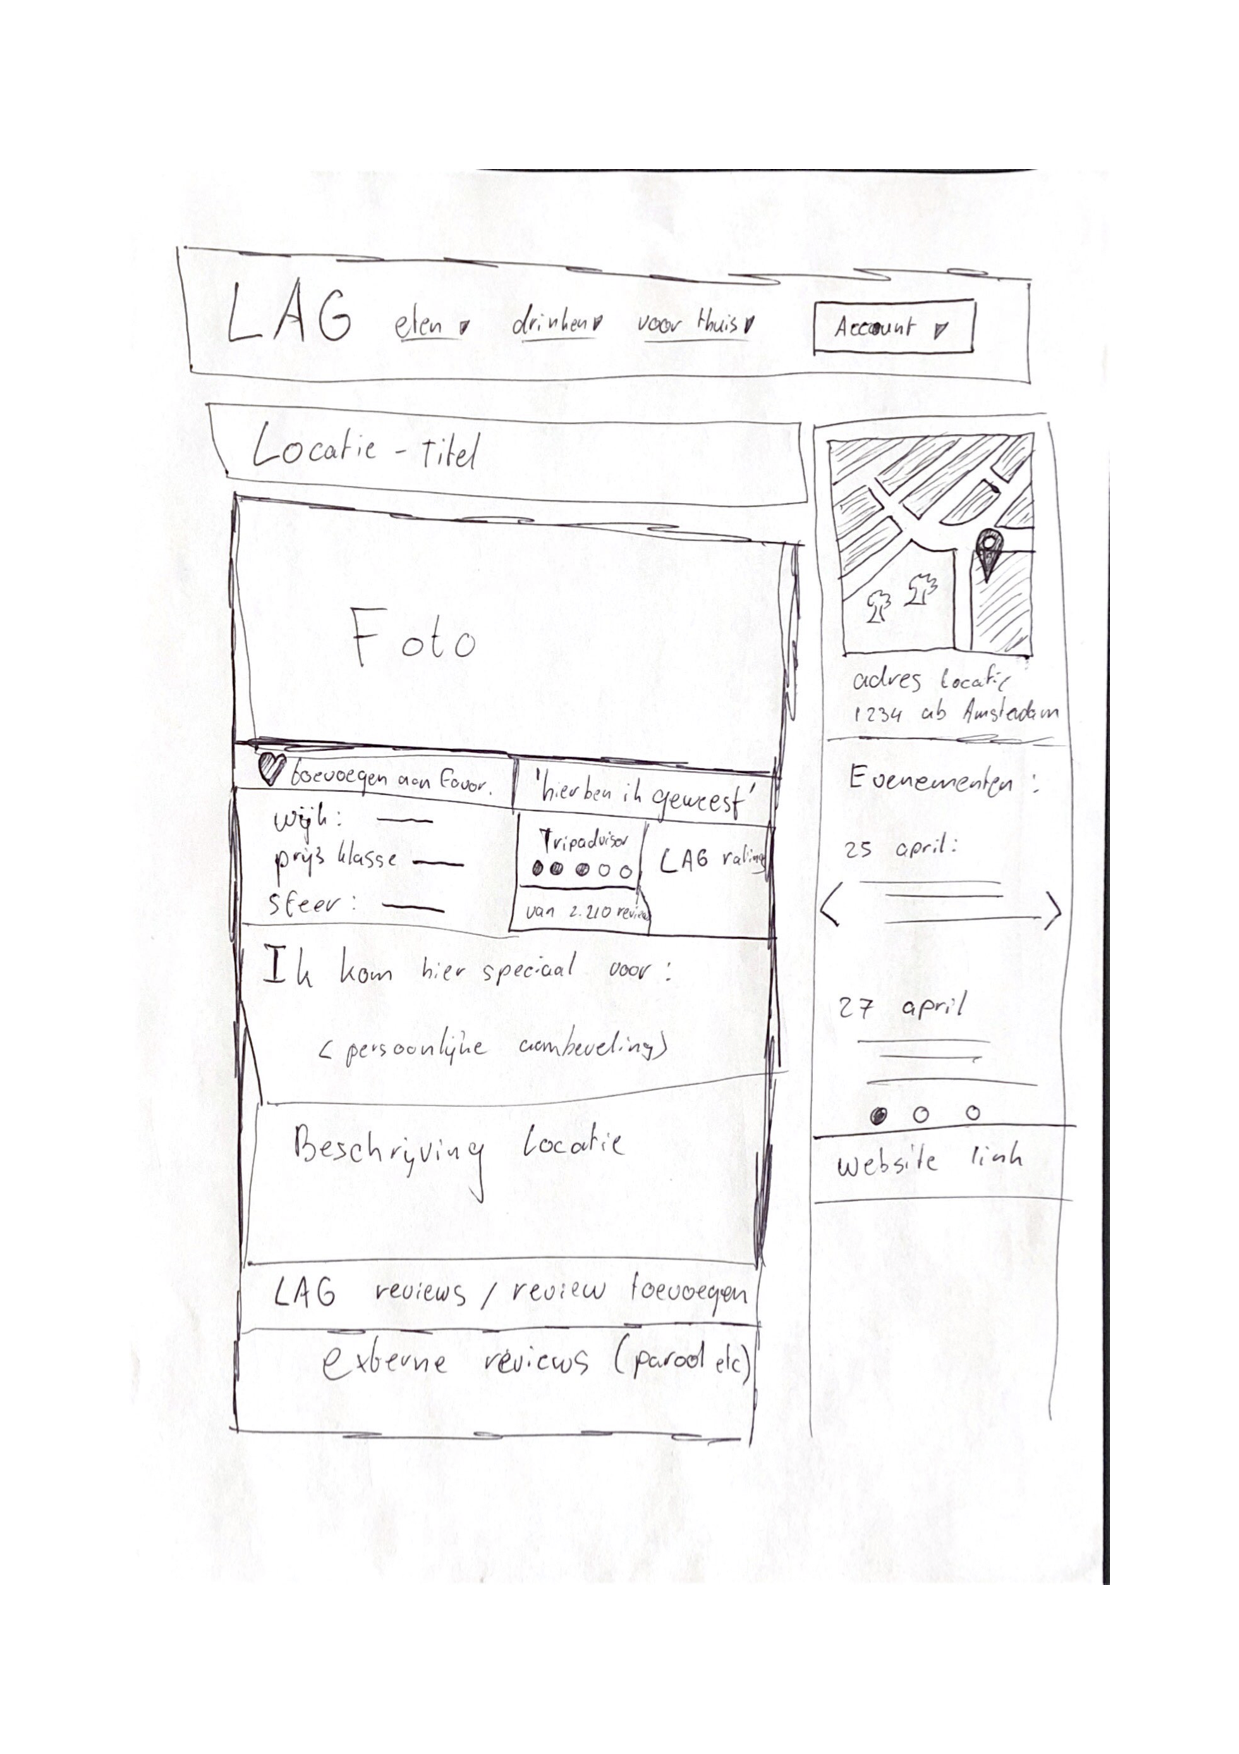 LAG eten drinken voor thuis Account
Locatie - Titel
Foto
toevoegen aan favor. 'hier ben ik geweest'
wijk:
prijs klasse
sfeer:
Tripadvisor
van 2.210 review
LAG rating
Ik kom hier speciaal voor:
< persoonlijke aanbeveling>
Beschrijving Locatie
LAG reviews / review toevoegen
externe reviews (parool etc)
adres locatie
1234 ab Amsterdam
Evenementen:
25 april:
27 april
website link